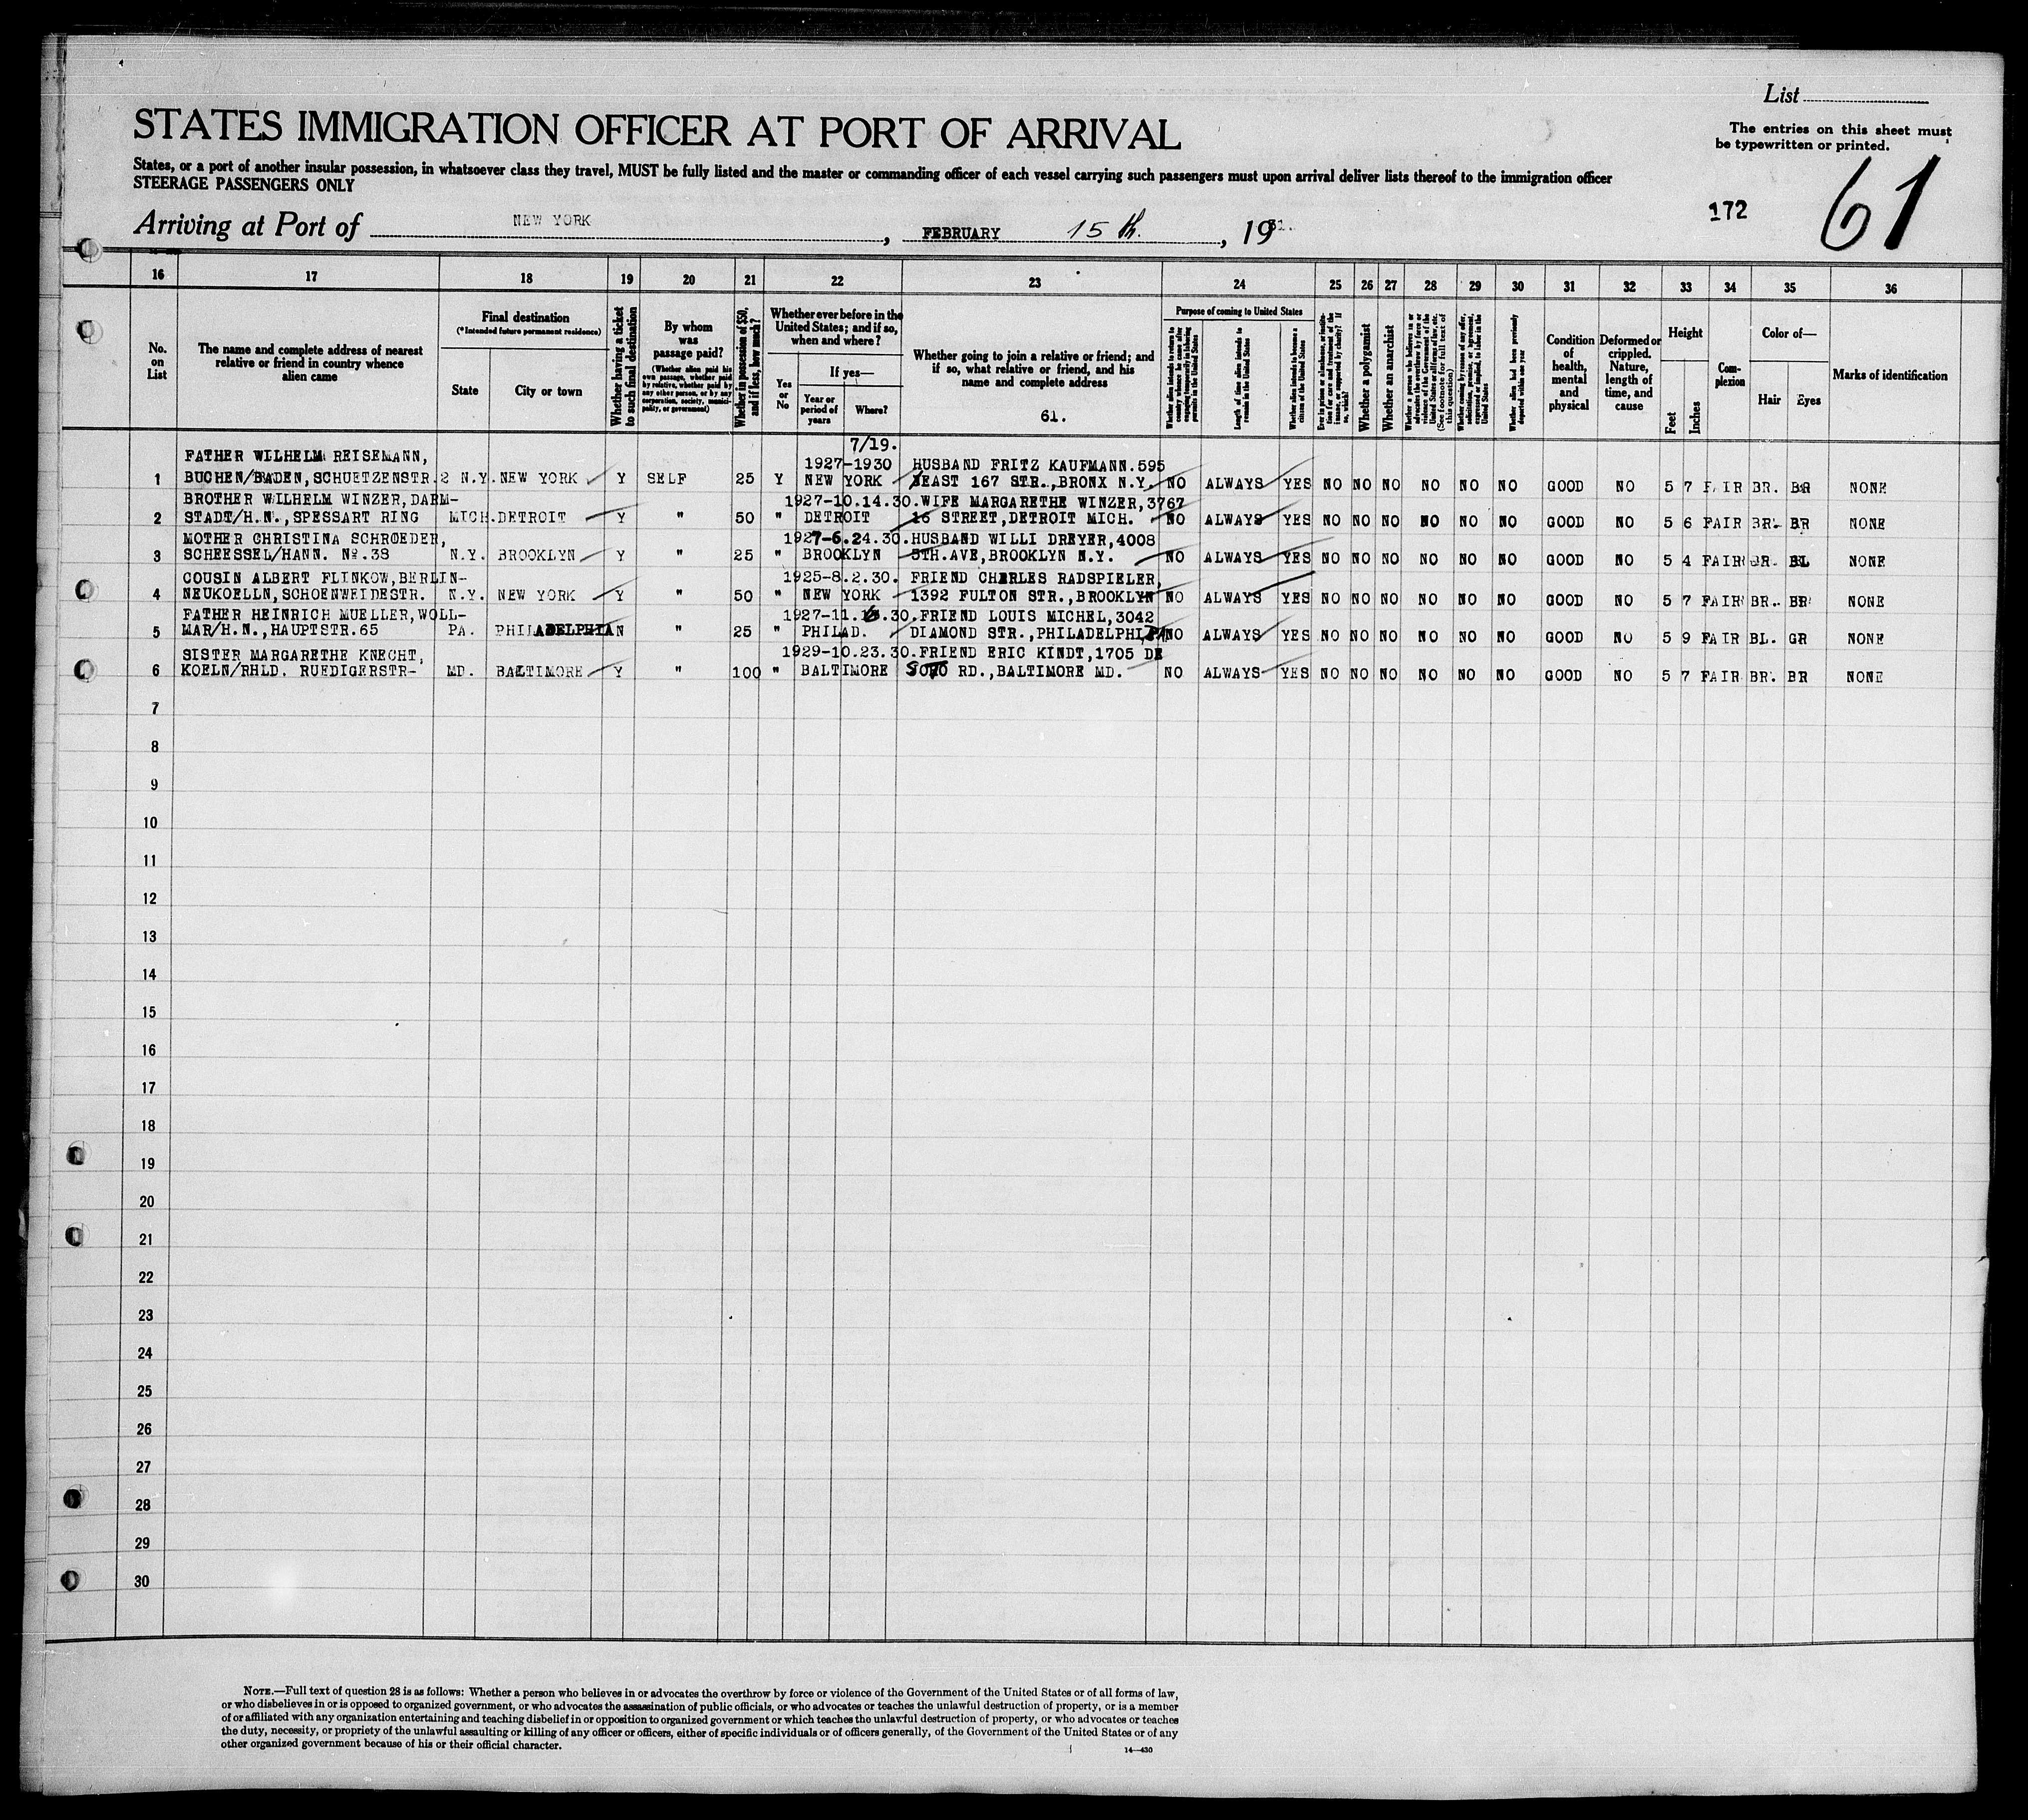 List
STATES IMMIGRATION OFFICER AT PORT OF ARRIVAL
The entries on this sheet must
be typewritten or printed.
States, or a port of another insular possession, in whatsoever class they travel, MUST be fully listed and the master or commanding officer of each vessel carrying such passengers must upon arrival deliver lists thereof to the immigration officer
STEERAGE PASSENGERS ONLY
172
61
Arriving at Port of NEW YORK, FEBRUARY 15 th., 1931.
16 17 18 19 20 21 22 23 24 25 26 27 28 29 30 31 32 33 34 35 36
No.
on
List
The name and complete address of nearest
relative or friend in country whence
alien came
Final destination
(*Intended future permanent residence)
State
City or town
Whether having a ticket
to such final destination
By whom
was
passage paid?
(Whether alien paid his
own passage, whether paid
by relative, whether paid by
any other person, or by any
corporation, society, munici-
pality, or government)
Whether in possession of $50,
and if less, how much?
Whether ever before in the
United States; and if so,
when and where?
Yes
or
No
If yes—
Year or
period of
years
Where?
Whether going to join a relative or friend; and
if so, what relative or friend, and his
name and complete address
61.
Purpose of coming to United States
Length of time alien intends to
remain in the United States
Whether alien intends to become a
citizen of the United States
Whether a polygamist
Whether an anarchist
Whether alien had been previously
deported within one year
Condition
of
health,
mental
and
physical
Deformed or
crippled.
Nature,
length of
time, and
cause
Height
Feet
Inches
Com-
plexion
Color of—
Hair
Eyes
Marks of identification
FATHER WILHELM REISEMANN, 7/19.
1927-1930 HUSBAND FRITZ KAUFMANN.595
1 BUCHEN/BADEN,SCHUETZENSTR.2 N.Y. NEW YORK Y SELF 25 Y NEW YORK EAST 167 STR.,BRONX N.Y. NO ALWAYS YES NO NO NO NO NO NO GOOD NO 5 7 FAIR BR. BR NONE
BROTHER WILHELM WINZER,DARM- 1927-10.14.30.WIFE MARGARETHE WINZER,3767
2 STADT/H.N.,SPESSART RING MICH. DETROIT Y " 50 " DETROIT 16 STREET,DETROIT MICH. NO ALWAYS YES NO NO NO NO NO NO GOOD NO 5 6 FAIR BR. BR NONE
MOTHER CHRISTINA SCHROEDER, 1927-6.24.30.HUSBAND WILLI DREYER,4008
3 SCHEESSEL/HANN. No.38 N.Y. BROOKLYN Y " 25 " BROOKLYN 5TH.AVE,BROOKLYN N.Y. NO ALWAYS YES NO NO NO NO NO NO GOOD NO 5 4 FAIR BR. BL NONE
COUSIN ALBERT FLINKOW,BERLIN- 1925-8.2.30. FRIEND CHARLES RADSPIELER,
4 NEUKOELLN,SCHOENWEIDESTR. N.Y. NEW YORK Y " 50 " NEW YORK 1392 FULTON STR.,BROOKLYN NO ALWAYS YES NO NO NO NO NO NO GOOD NO 5 7 FAIR BR. BR NONE
FATHER HEINRICH MUELLER,WOLL- 1927-11. .30.FRIEND LOUIS MICHEL,3042
5 MAR/H.N.,HAUPTSTR.65 PA. PHILADELPHIA N " 25 " PHILAD. DIAMOND STR.,PHILADELPHI,PA NO ALWAYS YES NO NO NO NO NO NO GOOD NO 5 9 FAIR BL. GR NONE
SISTER MARGARETHE KNECHT, 1929-10.23.30.FRIEND ERIC KINDT,1705 DE
6 KOELN/RHLD. RUEDIGERSTR- MD. BALTIMORE Y " 100 " BALTIMORE RD.,BALTIMORE MD. NO ALWAYS YES NO NO NO NO NO NO GOOD NO 5 7 FAIR BR. BR NONE
7
8
9
10
11
12
13
14
15
16
17
18
19
20
21
22
23
24
25
26
27
28
29
30
NOTE.—Full text of question 28 is as follows: Whether a person who believes in or advocates the overthrow by force or violence of the Government of the United States or of all forms of law,
or who disbelieves in or is opposed to organized government, or who advocates the assassination of public officials, or who advocates or teaches the unlawful destruction of property, or is a member
of or affiliated with any organization entertaining and teaching disbelief in or opposition to organized government or which teaches the unlawful destruction of property, or who advocates or teaches
the duty, necessity, or propriety of the unlawful assaulting or killing of any officer or officers, either of specific individuals or of officers generally, of the Government of the United States or of any
other organized government because of his or their official character.
14—430